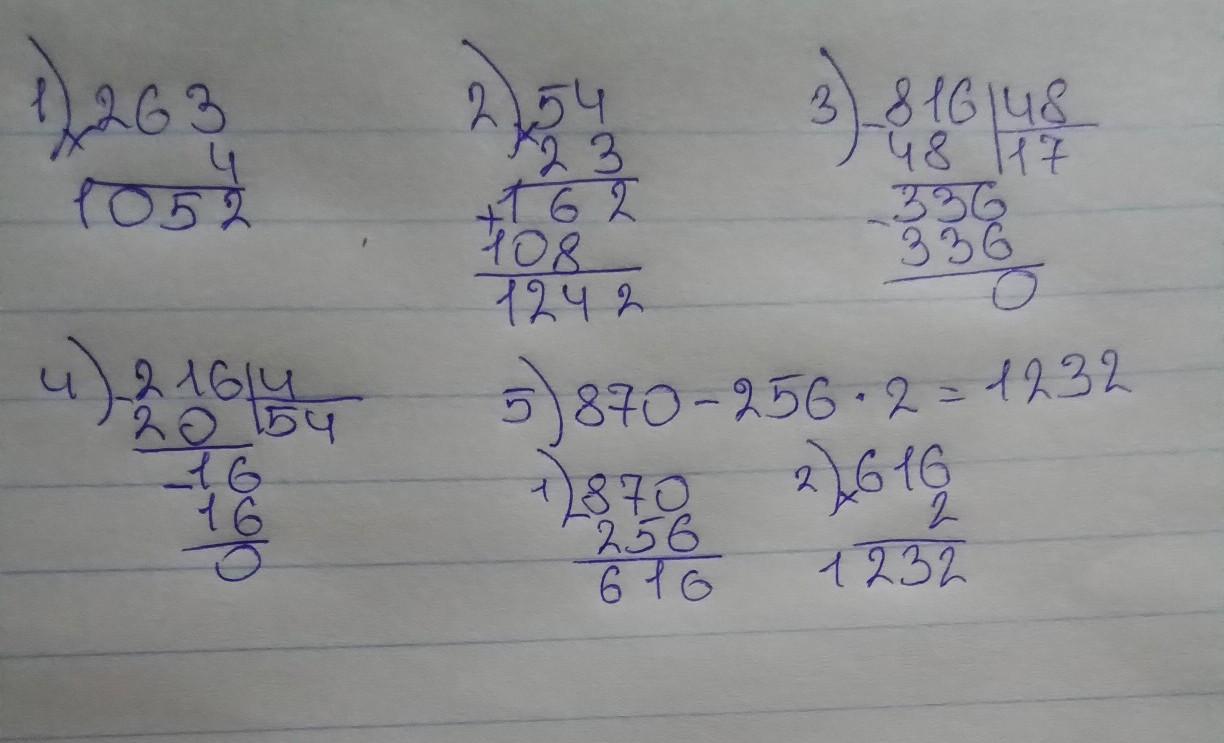 1) × 263
4
1052
2) × 54
23
+ 162
108
1242
3) - 816 | 48
48 | 17
336
- 336
0
4) - 216 | 4
20 | 54
- 16
16
0
5) 870 - 256 · 2 = 1232
1) - 870
256
616
2) × 616
2
1232